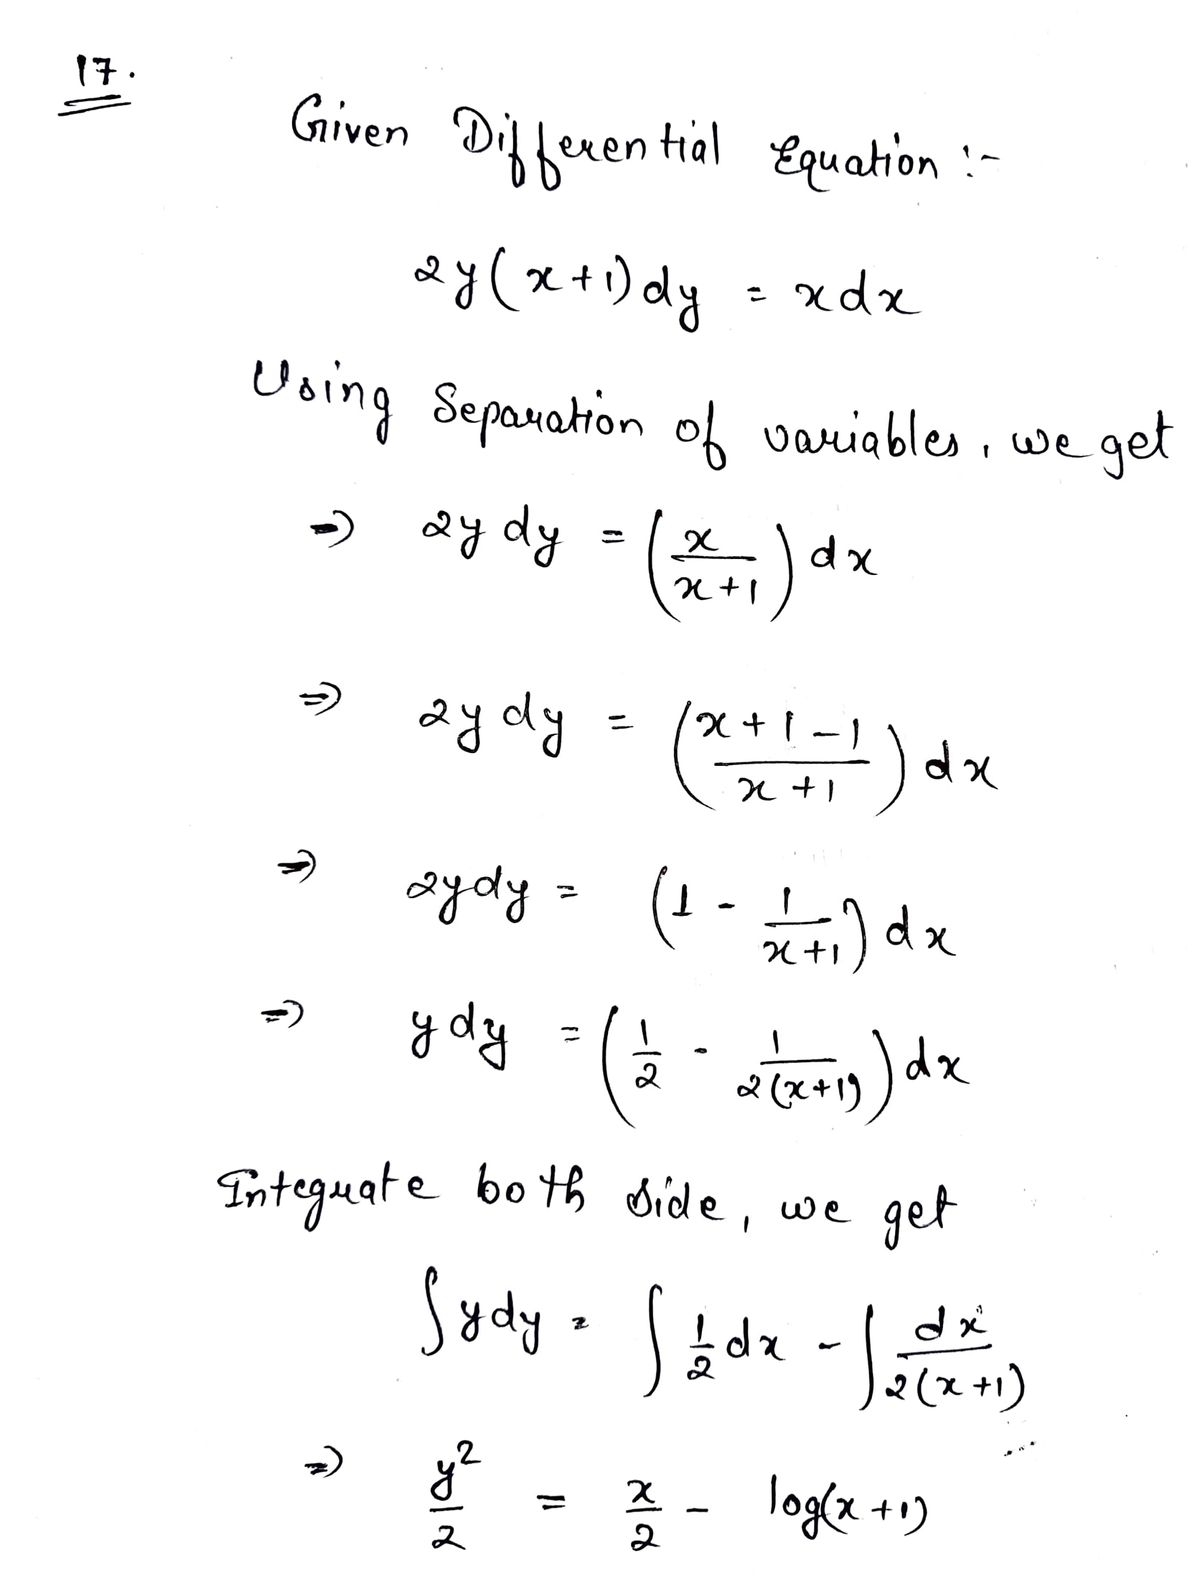 17.
Given Differential Equation :-
2y(x+1)dy = xdx
Using Separation of variables, we get
⇒ 2y dy = (x/(x+1)) dx
⇒ 2y dy = ((x+1-1)/(x+1)) dx
⇒ 2ydy = (1 - 1/(x+1)) dx
⇒ y dy = (1/2 - 1/(2(x+1))) dx
Integrate both side, we get
∫ydy = ∫ 1/2 dx - ∫ dx/(2(x+1))
⇒ y²/2 = x/2 - log(x+1)